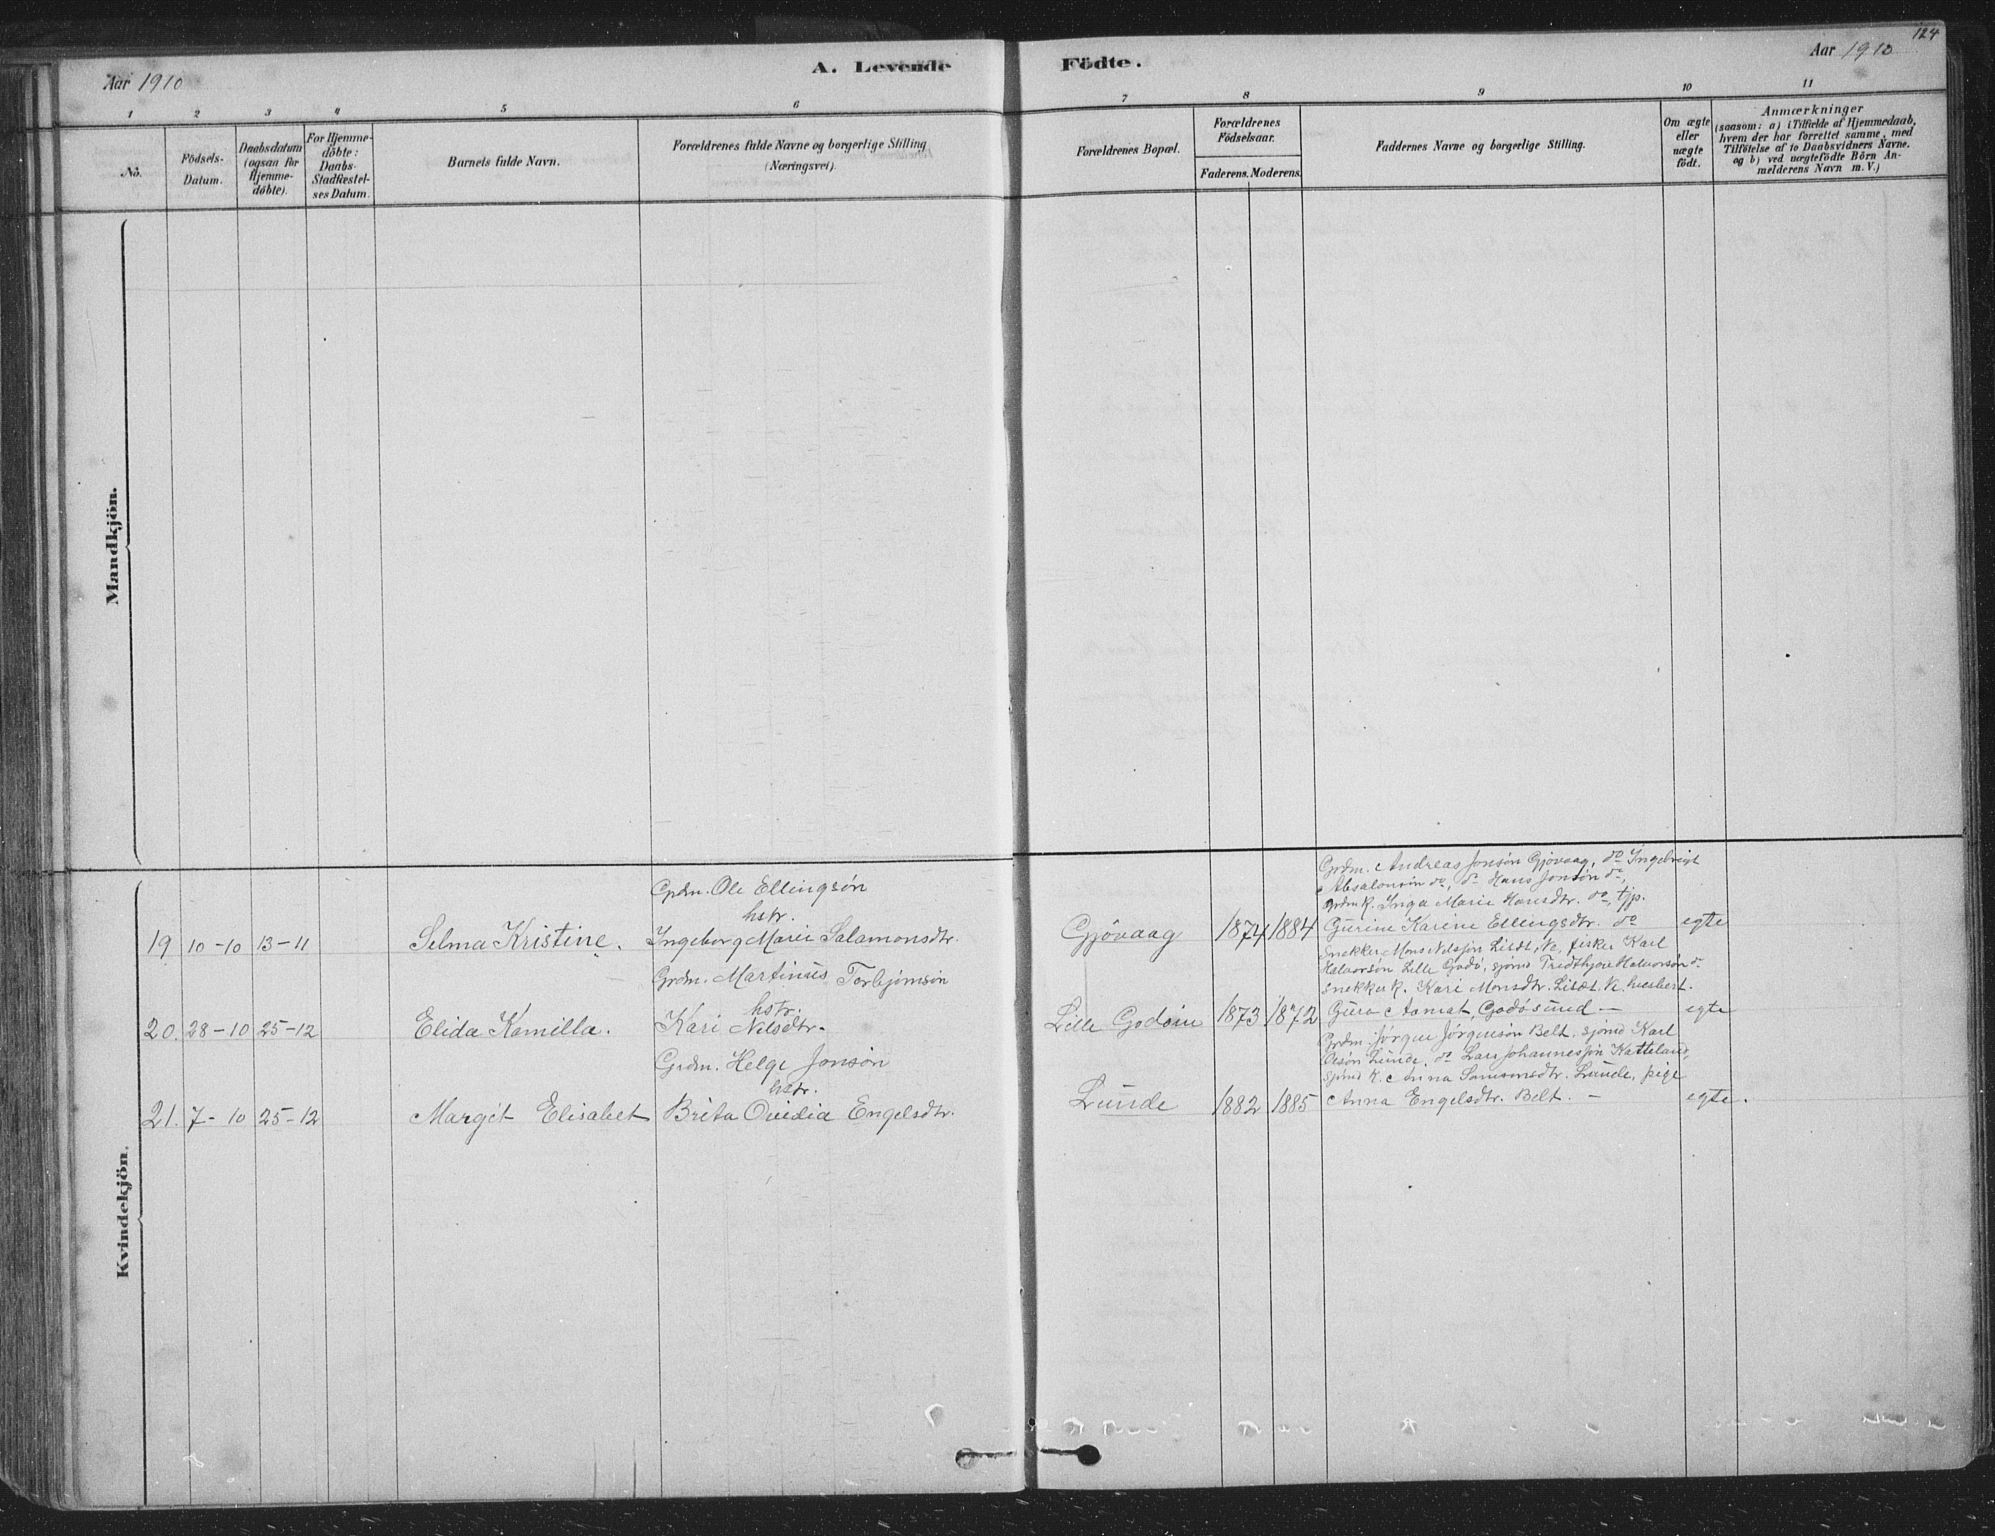 124
Aar 1910
A. Levende Födte.
Aar 1910
1 2 3 4 5 6 7 8 9 10 11
No.
Födsels-
Datum.
Daabsdatum
(ogsaa for
Hjemme-
döbte).
For Hjemme-
döbte:
Daabs-
Stadfæstel-
ses Datum.
Barnets fulde Navn.
Forældrenes fulde Navne og borgerlige Stilling
(Næringsvei).
Forældrenes Bopæl.
Forældrenes
Födselsaar.
Faderens. Moderens.
Faddernes Navne og borgerlige Stilling.
Om ægte
eller
uægte
födt.
Anmærkninger
(saasom: a) i Tilfælde af Hjemmedaab,
hvem der har forrettet samme, med
Tilföielse af to Daabsvidners Navne.
og b) ved uægtefödte Börn An-
melderens Navn m. V.)
Mandkjön.
Kvindekjön.
19 10-10 13-11
Selma Kristine.
Grdm. Ole Ellingsøn
hstr.
Ingeborg Marie Salamonsdtr.
Gjövaag
1874 1884
Grdm. Andreas Jonsøn Gjövaag, do Ingebrigt
Absalonsøn do, do Hans Jonsøn do,
grdm k. Inga Marie Hansdtr. do, tjp.
Gurine Karine Ellingsdtr. do
egte
20. 28-10 25-12
Elida Kamilla.
Grdm. Martinus Torbjørnsøn
hstr.
Kari Nelsdtr.
Lille Godöin
1873 1872
Snekker Mons Nelsøn Lisæt, fisker Karl
Halvorsøn Lille Godö, sjömd Fridthjov Halvorsøn do
snekker k. Kari Monsdtr. Lisæt,
Guro Aamat, Godösund —
egte
21. 7-10 25-12
Margit Elisabet
Grdm. Helge Jonsøn
hstr.
Brita Ovidia Engelsdtr.
Lunde
1882 1885
Grdm. Jørgen Jørgensøn Belt. sjömd Karl
Olsøn Lunde, do Lars Johannessøn Katteland,
sjömd k. Anna Samsonsdtr. Lunde, pige
Anna Engelsdtr. Belt. —
egte.